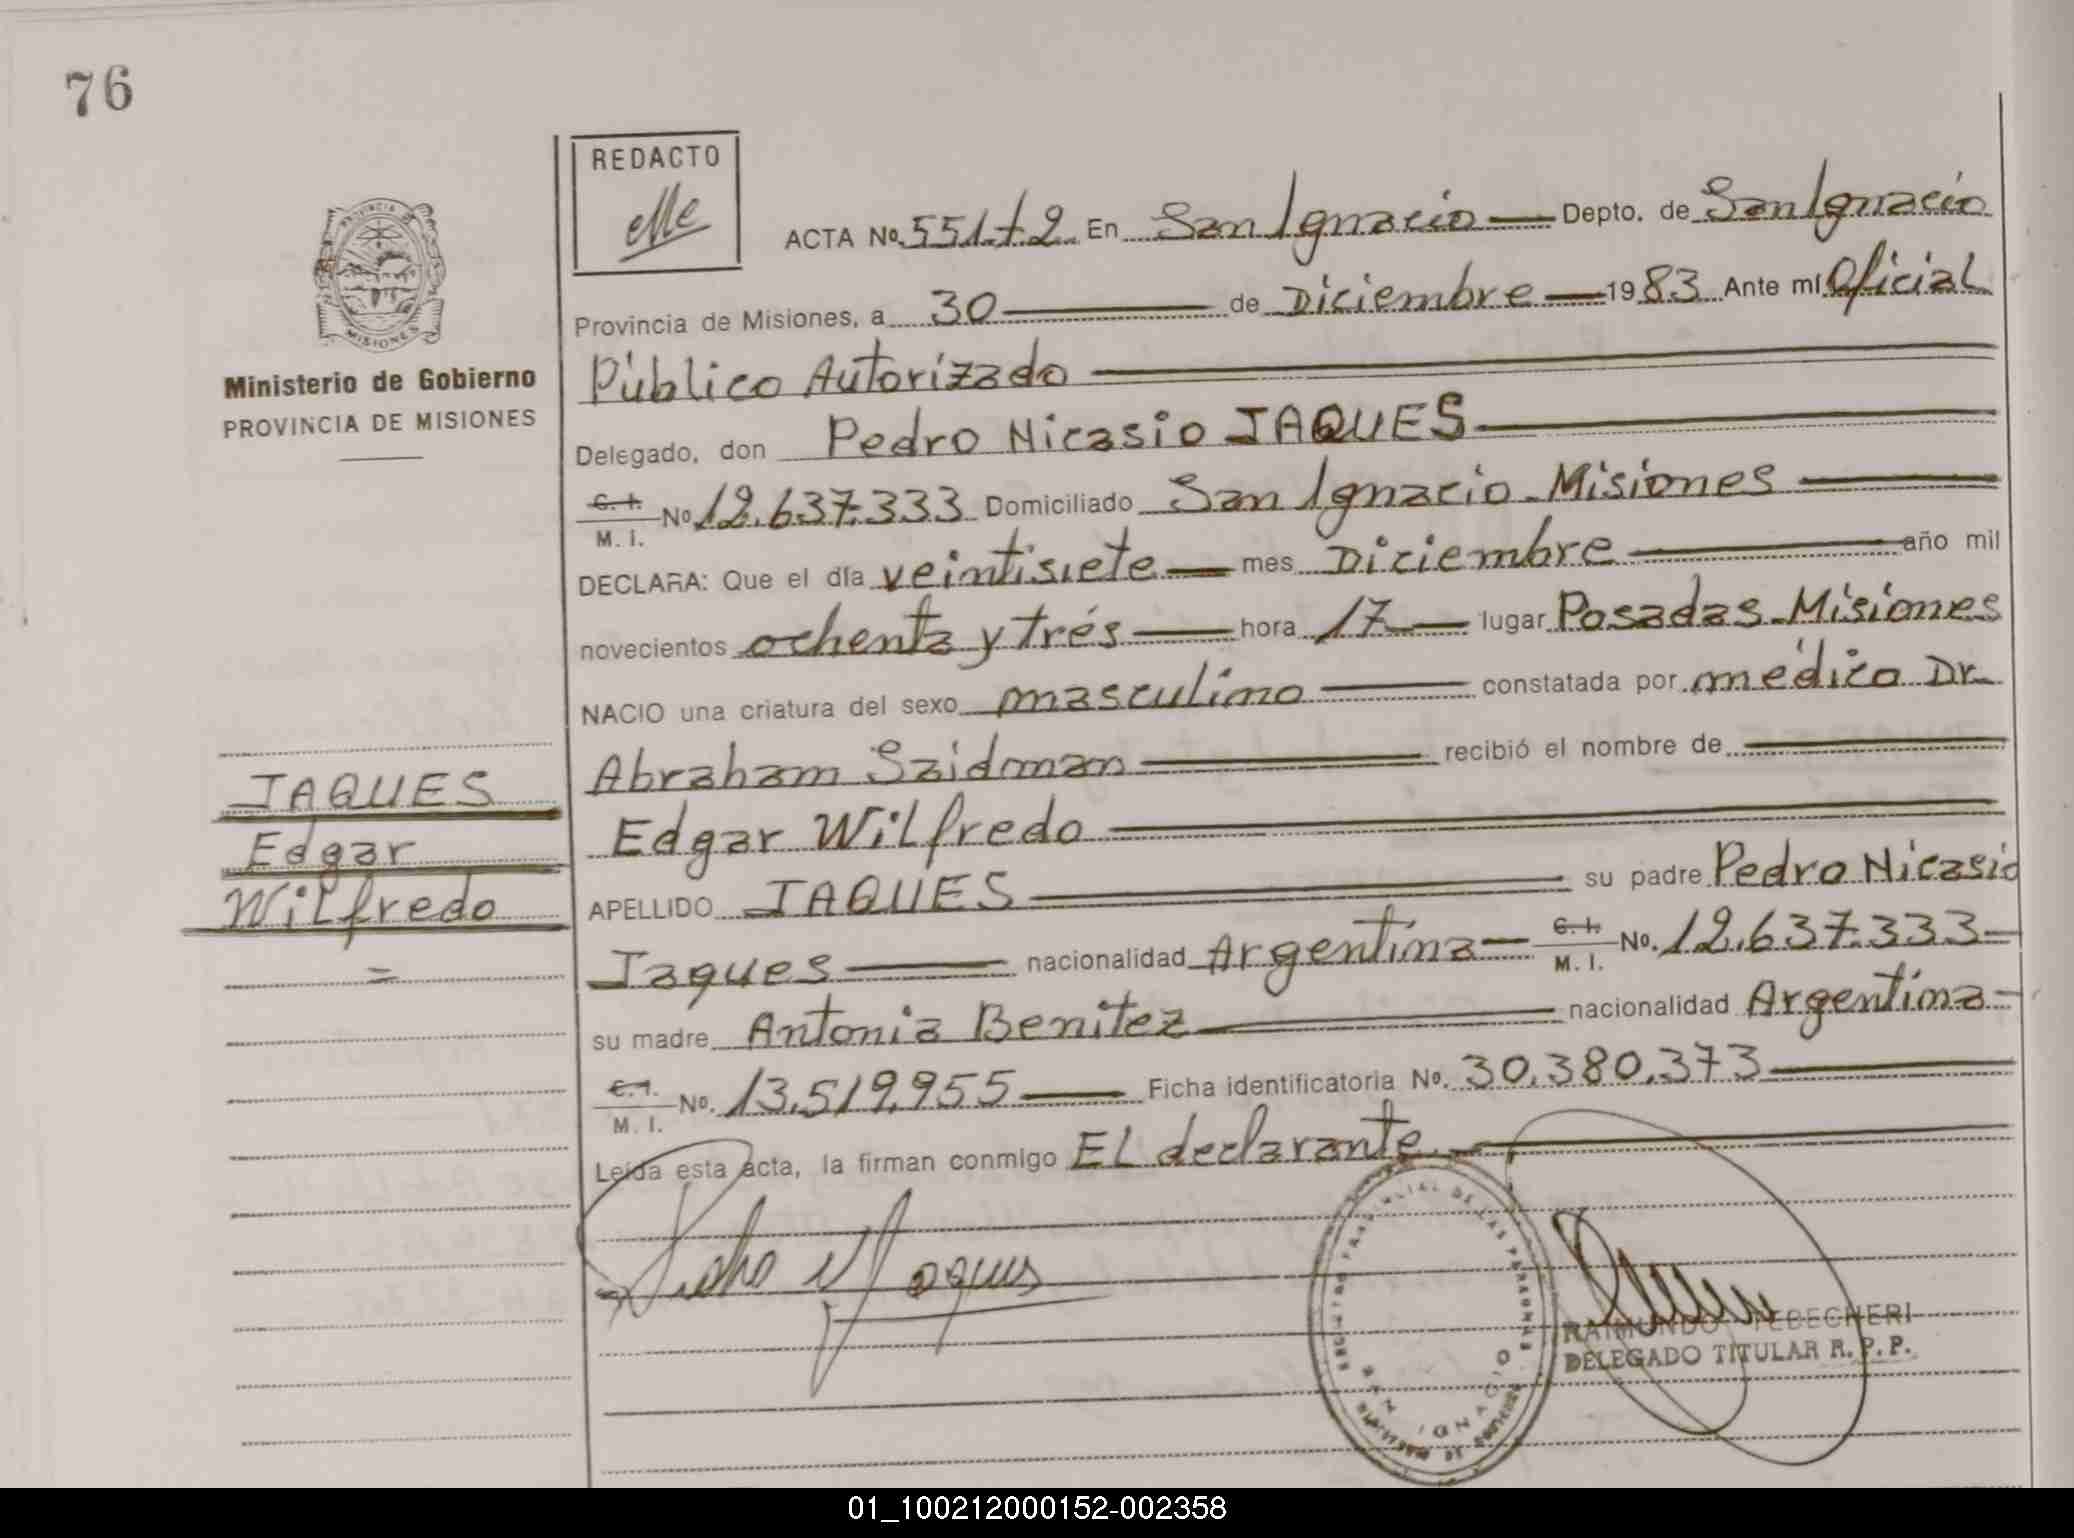 76
PROVINCIA DE
MISIONES
Ministerio de Gobierno
PROVINCIA DE MISIONES
JAQUES
Edgar
Wilfredo
=
REDACTO
ACTA No. 551.T2 En San Ignacio Depto. de San Ignacio
Provincia de Misiones, a 30 de Diciembre 1983 Ante mí Oficial
Público Autorizado
Delegado, don Pedro Nicasio JAQUES
C. I. M. I. No 12.637.333 Domiciliado San Ignacio - Misiones
DECLARA: Que el día veintisiete mes Diciembre año mil
novecientos ochenta y trés hora 17 lugar Posadas - Misiones
NACIO una criatura del sexo masculino constatada por médico Dr.
Abraham Saidman recibió el nombre de
Edgar Wilfredo
APELLIDO JAQUES su padre Pedro Nicasio
Jaques nacionalidad Argentina C. I. M. I. No. 12.637.333
su madre Antonia Benitez nacionalidad Argentina
C. I. M. I. No. 13.519.955 Ficha identificatoria No. 30.380.373
Leída esta acta, la firman conmigo El declarante
Pedro N Jaques
REGISTRO PROVINCIAL DE LAS PERSONAS
SAN IGNACIO
RAIMUNDO TEBECHERI
DELEGADO TITULAR R. P. P.
01_100212000152-002358